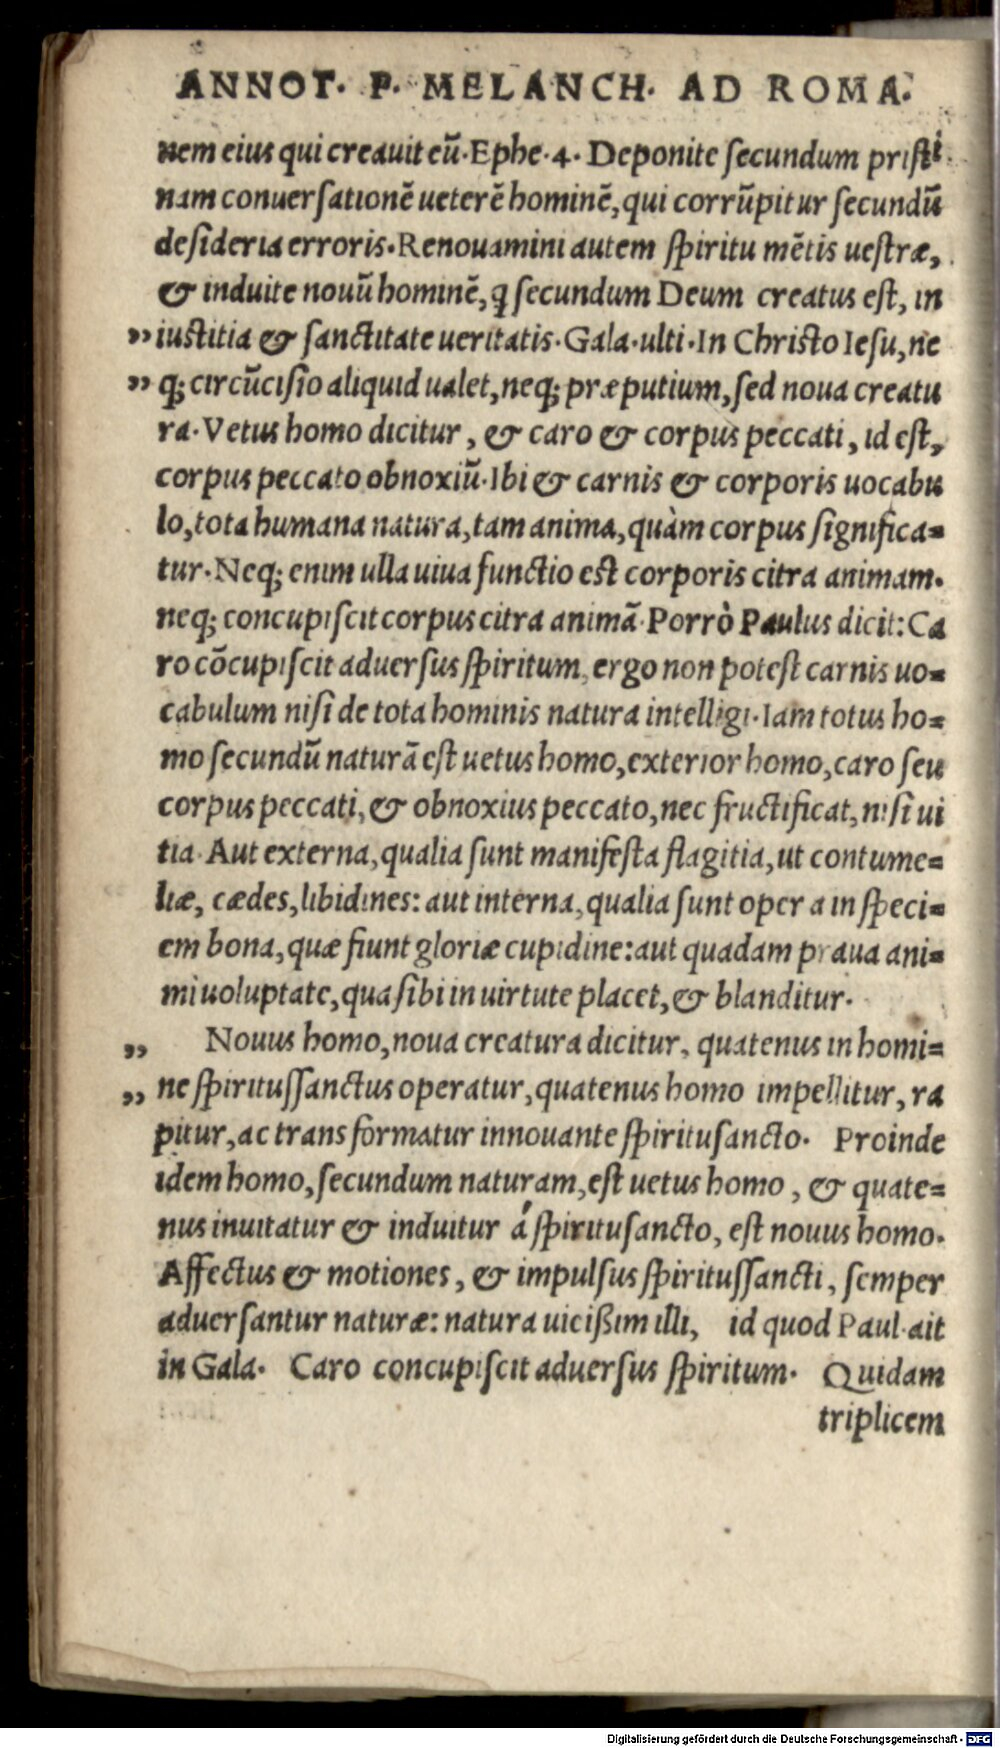 ANNOT. P. MELANCH. AD ROMA.
nem eius qui creauit eũ. Ephe. 4. Deponite secundum pristi
nam conuersationẽ ueterẽ hominẽ, qui corrũpitur secundũ
desideria erroris. Renouamini autem spiritu mẽtis uestræ,
& induite nouũ hominẽ, q̃ secundum Deum creatus est, in
„ iustitia & sanctitate ueritatis. Gala. ulti. In Christo Iesu, ne
„ q; circũcisio aliquid ualet, neq; præputium, sed noua creatu
ra. Vetus homo dicitur, & caro & corpus peccati, id est,
corpus peccato obnoxiũ. Ibi & carnis & corporis uocabu
lo, tota humana natura, tam anima, quàm corpus significa=
tur. Neq; enim ulla uiua functio est corporis citra animam.
neq; concupiscit corpus citra animã. Porrò Paulus dicit: Ca
ro cõcupiscit aduersus spiritum, ergo non potest carnis uo=
cabulum nisi de tota hominis natura intelligi. Iam totus ho=
mo secundũ naturã est uetus homo, exterior homo, caro seu
corpus peccati, & obnoxius peccato, nec fructificat, nisi ui
tia. Aut externa, qualia sunt manifesta flagitia, ut contume=
liæ, cædes, libidines: aut interna, qualia sunt opera in speci=
em bona, quæ fiunt gloriæ cupidine: aut quadam praua ani=
mi uoluptate, qua sibi in uirtute placet, & blanditur.
„ Nouus homo, noua creatura dicitur, quatenus in homi=
„ ne spiritussanctus operatur, quatenus homo impellitur, ra
pitur, ac transformatur innouante spiritusancto. Proinde
idem homo, secundum naturam, est uetus homo, & quate=
nus inuitatur & induitur á spiritusancto, est nouus homo.
Affectus & motiones, & impulsus spiritussancti, semper
aduersantur naturæ: natura uicißim illi, id quod Paul. ait
in Gala. Caro concupiscit aduersus spiritum. Quidam
triplicem
Digitalisierung gefördert durch die Deutsche Forschungsgemeinschaft - DFG